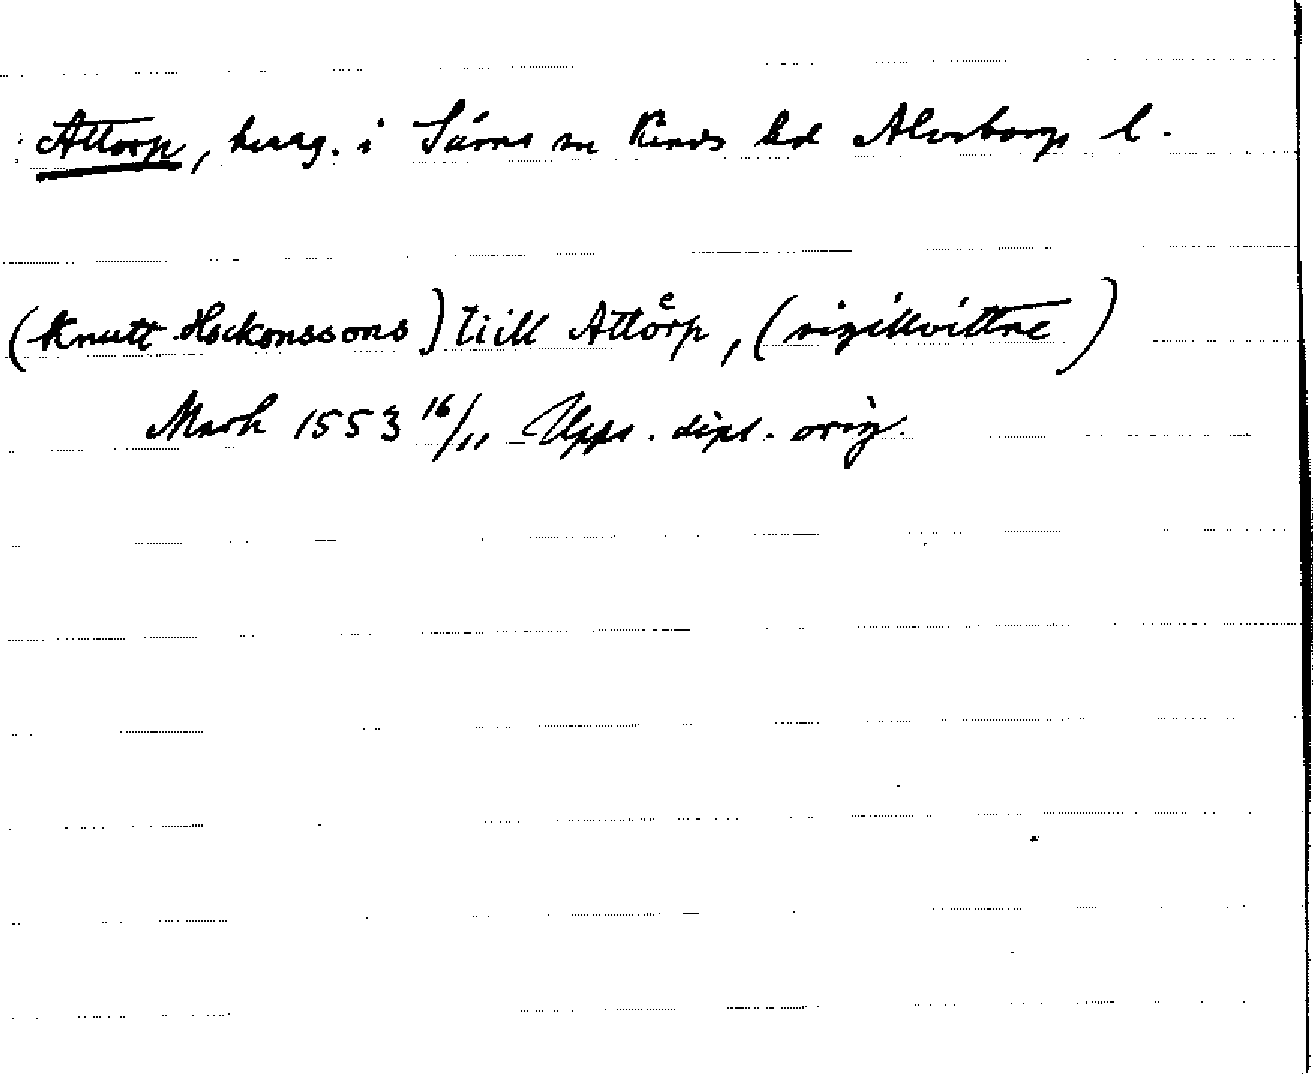 Attorp, herrg. i Särns sn Kinds hd Älvsborgs l.
(Knutt Hockonssons) tiill Attoͤrp, (sigillvittne)
Mark 1553 16/11 Upps. dipl. orig.